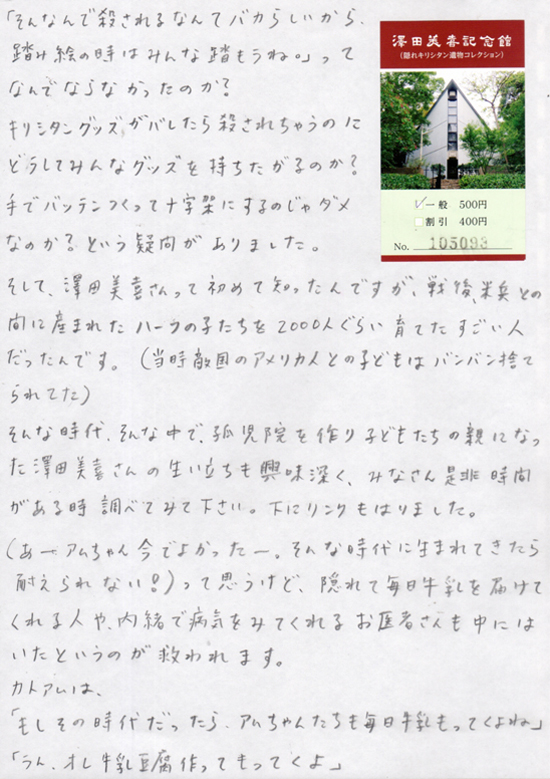 「そんなんで殺されるなんてバカらしいから、
踏み絵の時はみんな踏もうね。」って
なんでならなかったのか?
キリシタングッズがバレたら殺されちゃうのに
どうしてみんなグッズを持ちたがるのか?
手でバッテンつくって十字架にするのじゃダメ
なのか?という疑問がありました。
澤田美喜記念館
(隠れキリシタン遺物コレクション)
✓一般 500円
□割引 400円
No. 105093
そして、澤田美喜さんって初めて知ったんですが、戦後、米兵との
間に産まれたハーフの子たちを2000人ぐらい育てたすごい人
だったんです。(当時敵国のアメリカ人との子どもはバンバン捨て
られてた)
そんな時代、そんな中で、孤児院を作り子どもたちの親になっ
た澤田美喜さんの生い立ちも興味深く、みなさん是非時間
がある時調べてみて下さい。下にリンクもはりました。
(あーアムちゃん今でよかったー。そんな時代に生まれてきたら
耐えられない!)って思うけど、隠れて毎日牛乳を届けて
くれる人や、内緒で病気をみてくれるお医者さんも中には
いたというのが救われます。
カトアムは、
「もしその時代だったら、アムちゃんたちも毎日牛乳もってくよね」
「うん、オレ牛乳豆腐作ってもってくよ」